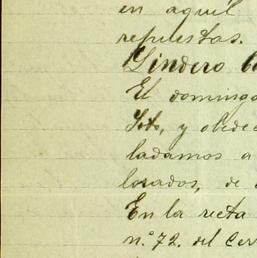 en aquel
repuestas.
Gindero
El domingo
Soto, y obedec
ladamos a
lorados, de
En la recta
n.º 72. del Cer